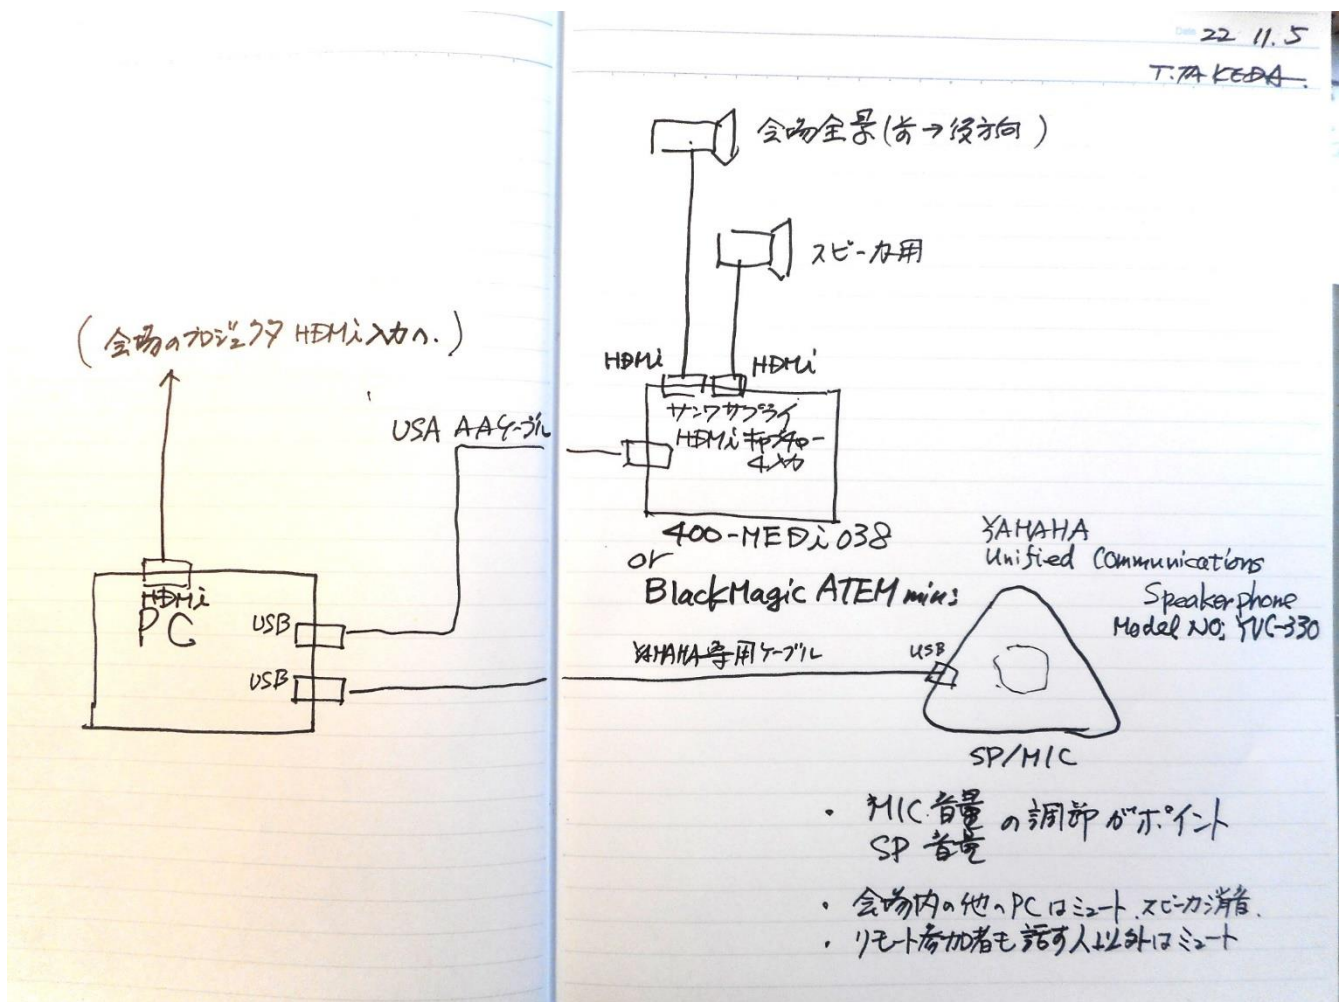 22 11.5
T.TAKEDA.
会場全景(前→後方向)
スピーカ用
(会場のプロジェクタ HDMi入力へ.)
HDMi
HDMi
USA AAケーブル
サンワサプライ
HDMiキャプチャー
4入力
400-MEDi038
or
BlackMagic ATEM mini
YAHAHA
Unified Communications
Speakerphone
Model NO: YVC-330
HDMi
PC
USB
USB
YAHAHA専用ケーブル
USB
SP/MIC
・ MIC 音量 の調節がポイント
SP 音量
・ 会場内の他のPCはミュート.スピーカ消音.
・ リモート参加者も話す人以外はミュート